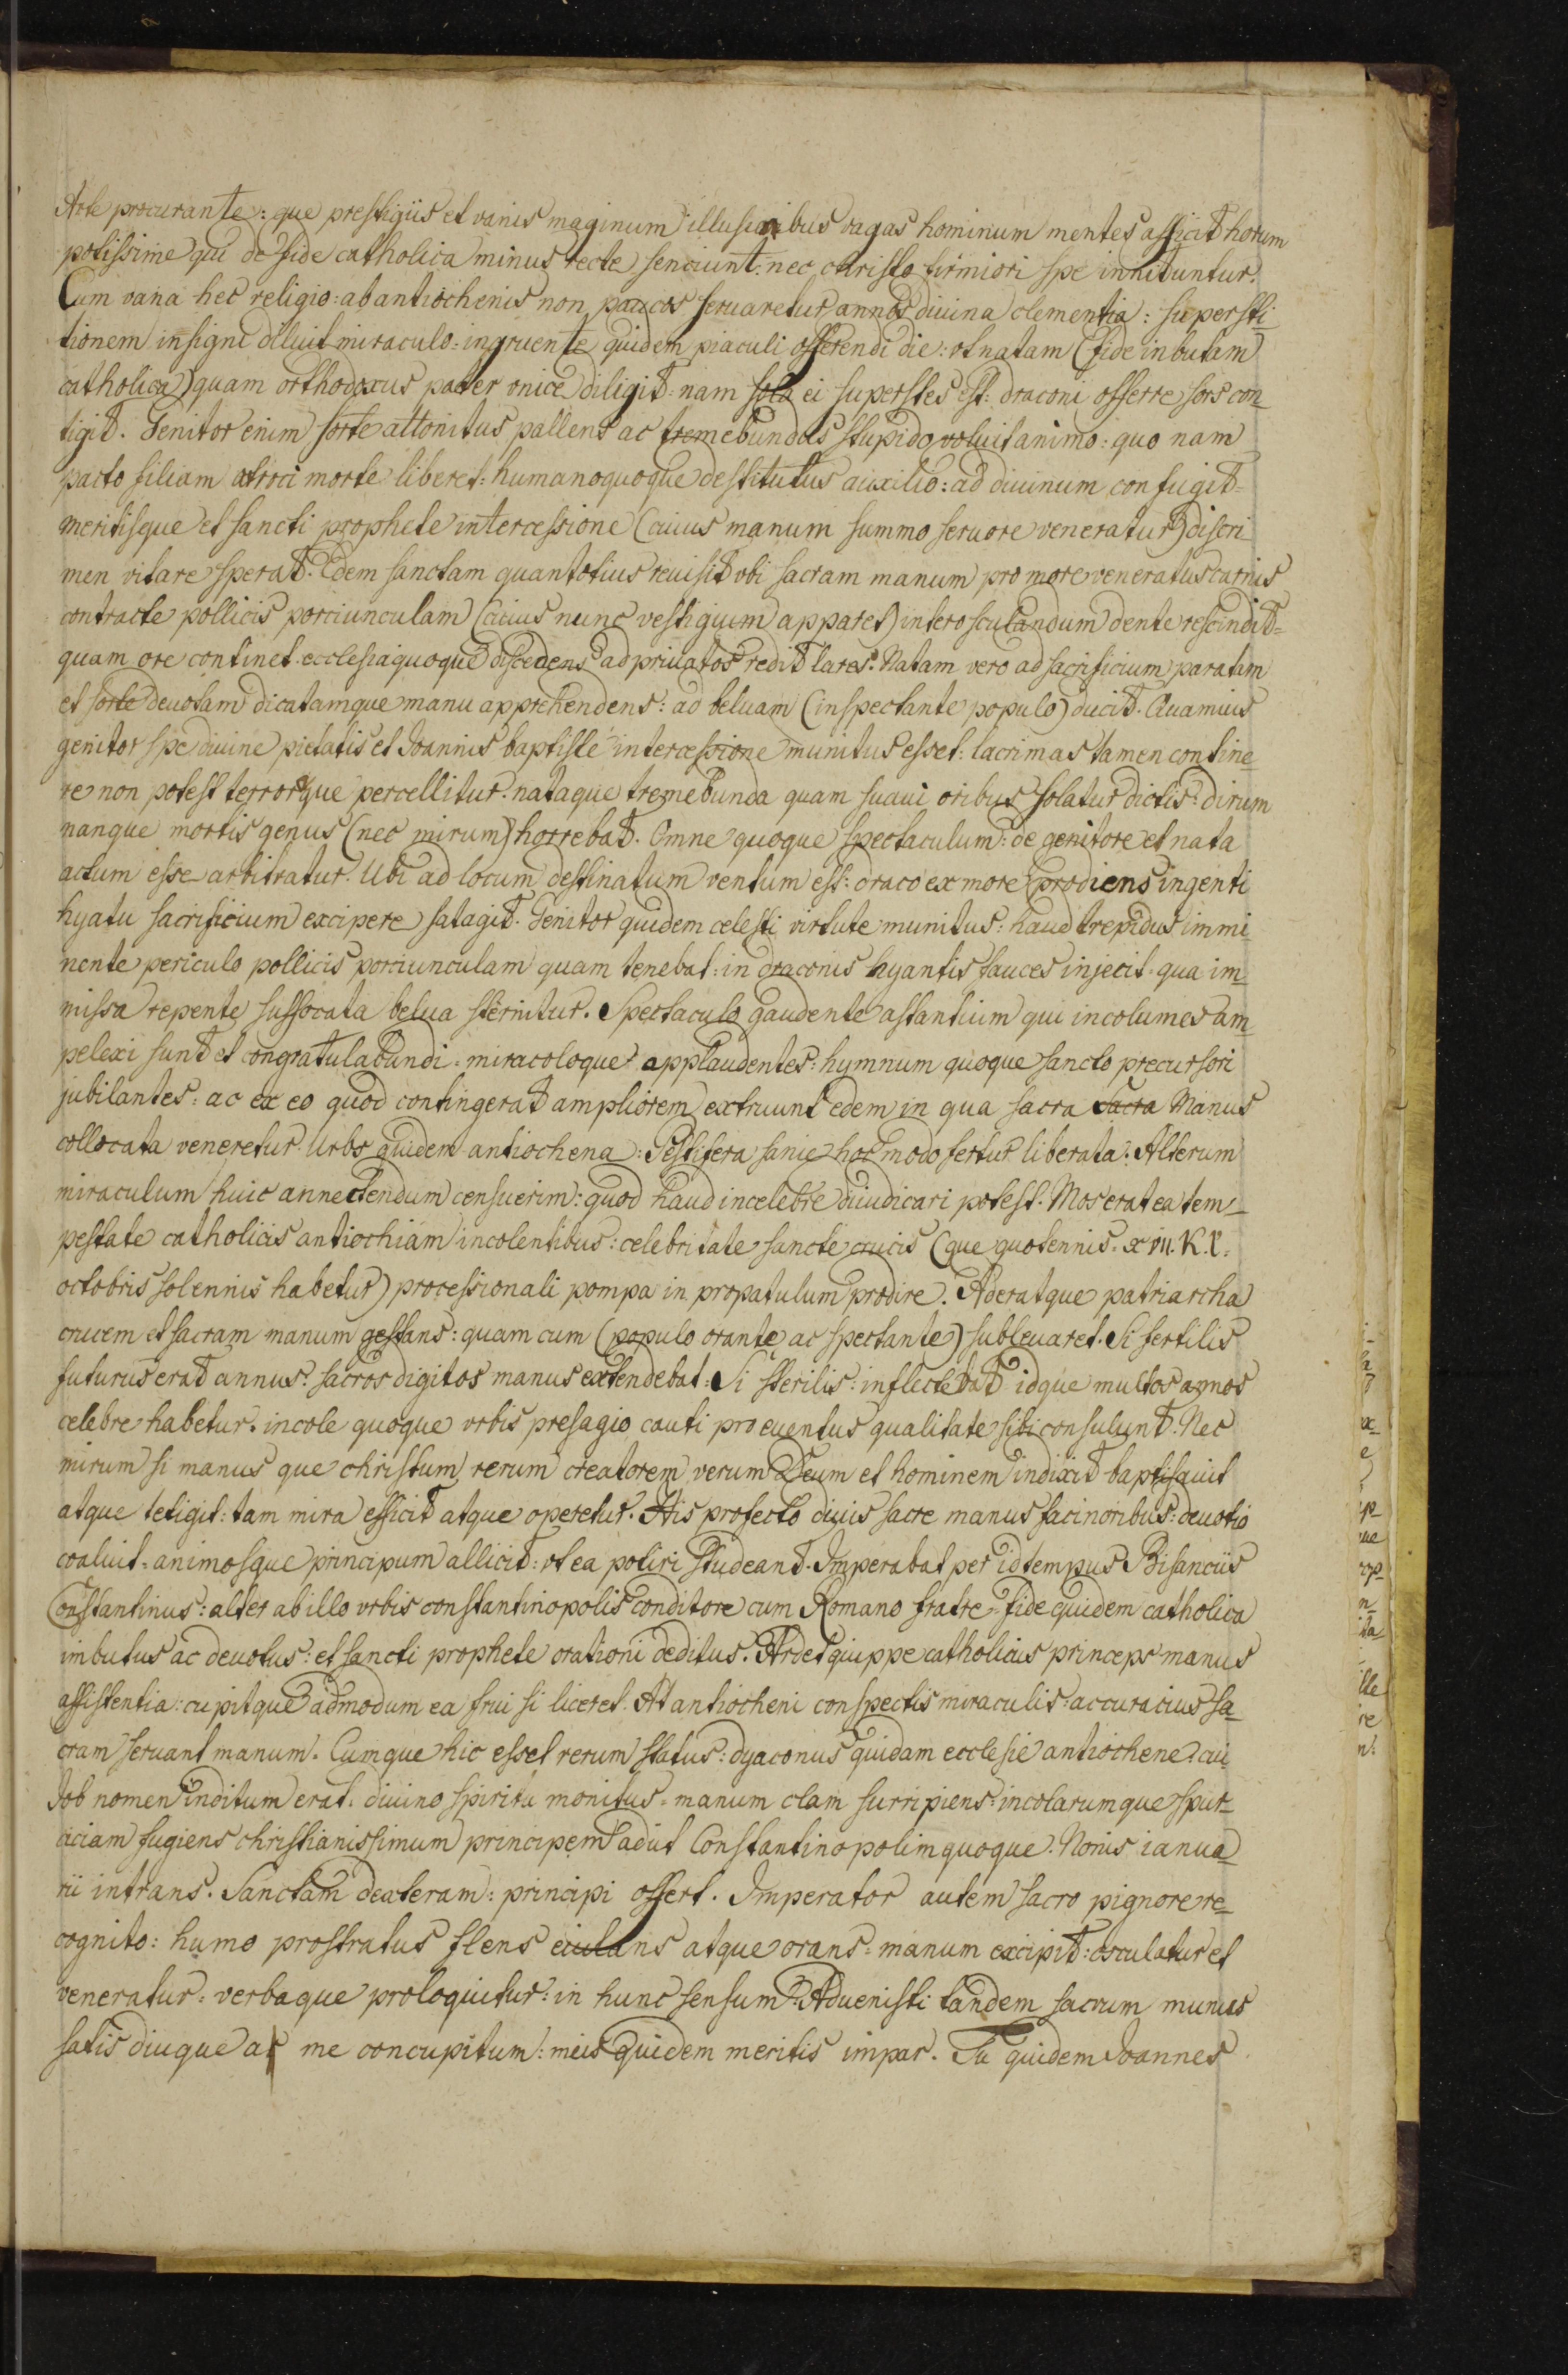 Arte procurante: que prestigiis et vanis maginum illusionibus vagas hominum mentes afficit horum
potissime qui de fide catholica minus recte senciunt: nec christo firmiori spe innituntur.
Cum vana hec religio: ab antiochenis non paucos seruaretur annos diuina clementia: supersti-
tionem insigni diluit miraculo: ingruente quidem piaculi offerendi die: vt natam (fide inbutam
catholica) quam orthodoxus pater vnice diligit: nam sola ei superstes est: draconi offerre sors con-
tigit. Genitor enim sorte attonitus pallens ac tremebundus stupido voluit animo: quo nam
pacto filiam atroci morte liberet: humanoquoque destitutus auxilio: ad diuinum confugit=
meritisque et sancti prophete intercessione (cuius manum summo feruore veneratur) discri-
men vitare sperat. Edem sanctam quantotius reuisit vbi sacram manum pro more veneratus carnis
contracte pollicis porciunculam (cuius nunc vestigium apparet) inter osculandum dente rescindit=
quam ore continet. ecclesiaquoque discedens ad priuatos redit lares. Natam vero ad sacrificium paratam
et sorte deuotam dicatamque manu apprehendens: ad beluam (inspectante populo) ducit. Quamuis
genitor spe diuine pietatis et Joannis baptiste intercessione munitus esset: lacrimas tamen contine-
re non potest terrorque percellitur. nataque tremebunda quam suaui oribus solatur dictis: dirum
nanque mortis genus (nec mirum) horrebat. Omne quoque spectaculum: de genitore et nata
actum esse arbitratur. Ubi ad locum destinatum ventum est: draco ex more prodiens ingenti
hyatu sacrificium excipere satagit. Genitor quidem celesti virtute munitus: haud trepidus immi-
nente periculo pollicis porciunculam quam tenebat: in draconis hyantis fauces injecit. qua im-
missa repente suffocata belua sternitur. Spectaculo gaudente astantium qui incolumes am-
pelexi sunt et congratulabundi: miracoloque applaudentes: hymnum quoque sancto precursori
jubilantes: ac ex eo quod contingerat ampliorem extruunt edem in qua sacra sacra Manus
collocata veneretur. Urbs quidem antiochena: Pestifera sanie hoc modo fertur liberata. Alterum
miraculum huic annectendum censuerim: quod haud incelebre diiudicari potest. Mos erat ea tem-
pestate catholicis antiochiam incolentibus: celebritate sancte crucis (que quotennis. xvii. K.l.
octobris solennis habetur) processionali pompa in propatulum prodire. Aderatque patriarcha
crucem et sacram manum gestans: quam cum (populo orante ac spectante) subleuaret. Si fertilis
futurus erat annus: sacros digitos manus extendebat: Si sterilis: inflectebat idque multos annos
celebre habetur. incole quoque vrbis presagio cauti pro euentus qualitate sibi consulunt. Nec
mirum si manus que christum rerum creatorem verum Deum et hominem indixit baptisauit
atque tetigit: tam mira efficit atque operetur. His profecto diuis sacre manus facinoribus: deuotio
coaluit: animosque principum allicit: vt ea potiri studeant. Imperabat per id tempus Bisanciis
Constantinus: alter ab illo vrbis constantinopolis conditore cum Romano fratre: fide quidem catholica
imbutus ac deuotus: et sancti prophete orationi deditus. Ardet quippe catholicus princeps manus
assistentia: cupitque admodum ea frui si liceret. At antiocheni conspectis miraculis: accuracius sa-
cram seruant manum. Cumque hic esset rerum status: dyaconus quidam ecclesie antiochene: cui
Job nomen inditum erat: diuino spiritu monitus: manum clam surripiens: incolarumque spur-
ciciam fugiens christianissimum principem adiit Constantinopolimquoque. Nonis ianua-
rii intrans. Sanctam dexteram: principi offert. Imperator autem sacro pignore re-
cognito: humo prostratus flens eiulans atque orans: manum excipit: osculatur et
veneratur: verbaque proloquitur: in hunc sensum: Aduenisti tandem sacrum munus
satis diuque a me concupitum: meis quidem meritis impar. Tu quidem Joannes